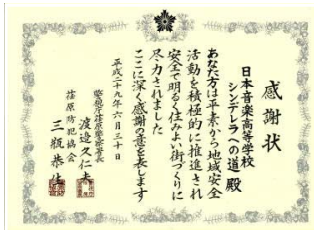 感謝状
日本音楽高等学校
シンデレラへの道 殿
あなた方は平素から地域安全
活動を積極的に推進され
安全で明るく住みよい街づくりに
尽力されました
ここに深く感謝の意を表します
平成二十九年六月三十日
警視庁荏原警察署長
渡邉久仁夫
荏原防犯協会
三瓶恭佑